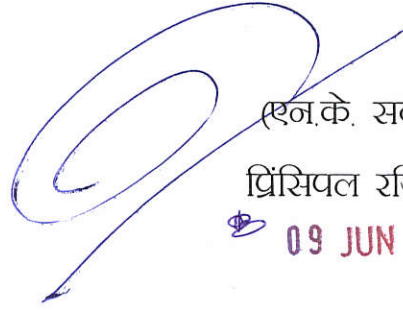 (एन.के.
प्रिंसिपल
09 JUN